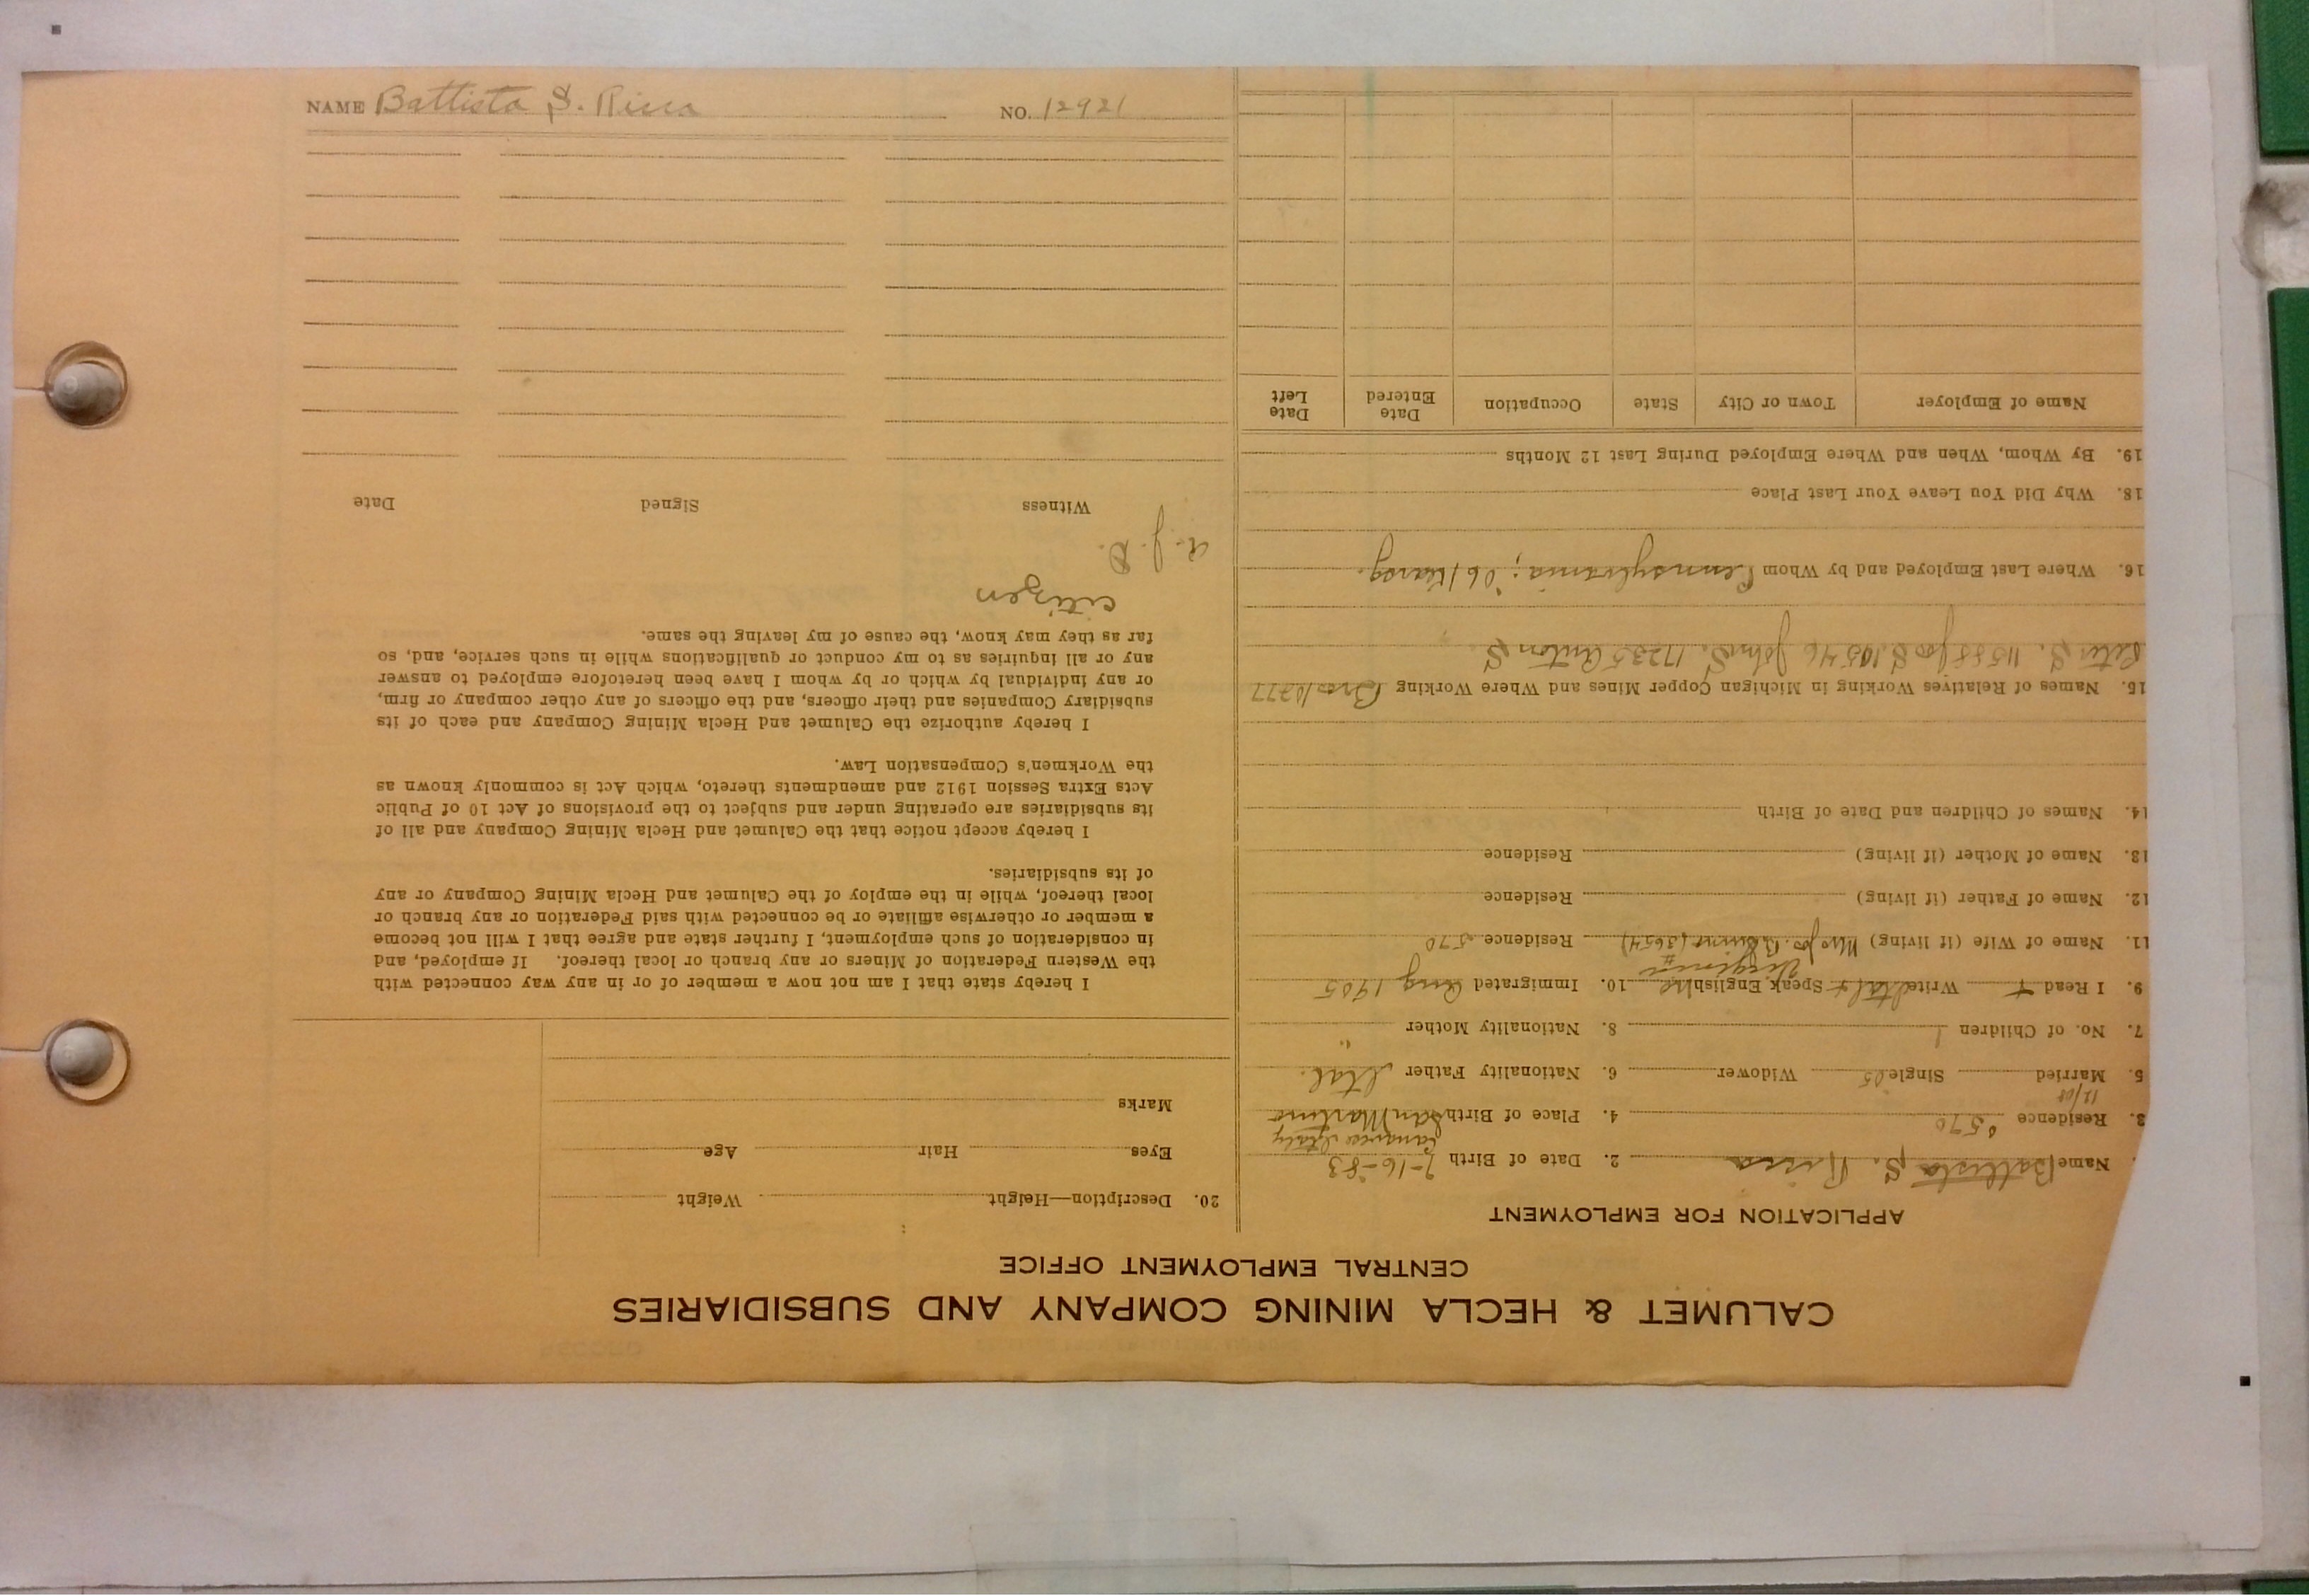 CALUMET & HECLA MINING COMPANY AND SUBSIDIARIES
CENTRAL EMPLOYMENT OFFICE
APPLICATION FOR EMPLOYMENT
Name Battista S. Rissa 2. Date of Birth 7-16-83
3. Residence 570 4. Place of Birth San Martino
Canavese Italy
11/08
5. Married Single Widower 6. Nationality Father Ital.
7. No. of Children 1 8. Nationality Mother "
9. I Read + Write Ital + Speak English 10. Immigrated Aug 1905
11. Name of Wife (if living) Residence 570
12. Name of Father (if living) Residence
13. Name of Mother (if living) Residence
14. Names of Children and Date of Birth
15. Names of Relatives Working in Michigan Copper Mines and Where Working Bro 10277
Peter S. 11588 Joe S. 10546 John S. 17235 Anton S
16. Where Last Employed and by Whom Pennsylvania; 06/
18. Why Did You Leave Your Last Place
19. By Whom, When and Where Employed During Last 12 Months
Name of Employer Town or City State Occupation Date Entered Date Left
20. Description—Height Weight
Eyes Hair Age
Marks
I hereby state that I am not now a member of or in any way connected with
the Western Federation of Miners or any branch or local thereof. If employed, and
in consideration of such employment, I further state and agree that I will not become
a member or otherwise affiliate or be connected with said Federation or any branch or
local thereof, while in the employ of the Calumet and Hecla Mining Company or any
of its subsidiaries.
I hereby accept notice that the Calumet and Hecla Mining Company and all of
its subsidiaries are operating under and subject to the provisions of Act 10 of Public
Acts Extra Session 1912 and amendments thereto, which Act is commonly known as
the Workmen's Compensation Law.
I hereby authorize the Calumet and Hecla Mining Company and each of its
subsidiary Companies and their officers, and the officers of any other company or firm,
or any individual by which or by whom I have been heretofore employed to answer
any or all inquiries as to my conduct or qualifications while in such service, and, so
far as they may know, the cause of my leaving the same.
citizen
a. J. D.
Witness Signed Date
NAME Battista S. Rissa NO. 12921